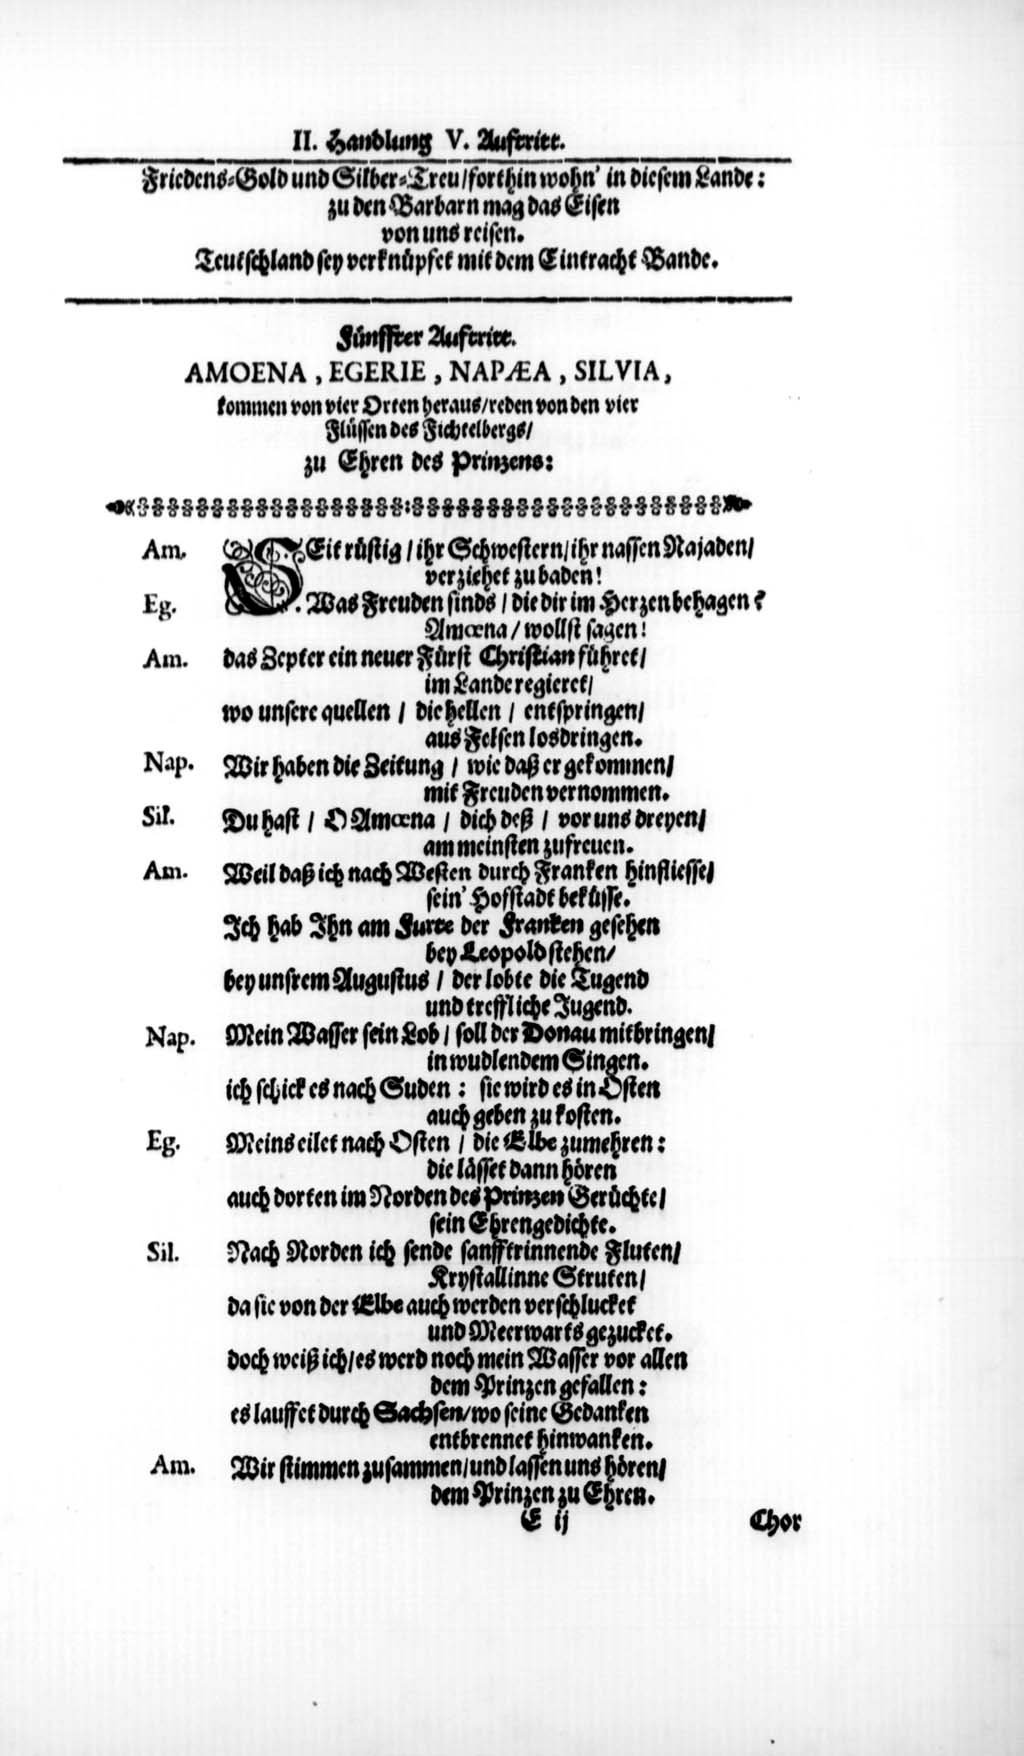 II. Handlung V. Auftritt.
Friedens-Gold und Silber-Treu/forthin wohn' in diesem Lande:
zu den Barbarn mag das Eisen
von uns reisen.
Teutschland sey verknüpfet mit dem Eintracht Bande.
Fünffter Auftritt.
AMOENA, EGERIE, NAPÆA, SILVIA,
kommen von vier Orten heraus/reden von den vier
Flüssen des Fichtelbergs/
zu Ehren des Prinzens:
Am. SEit rüstig / ihr Schwestern/ihr nassen Najaden/
verziehet zu baden!
Eg. Was Freuden sinds / die dir im Herzen behagen?
Amœna / wollst sagen!
Am. das Zepter ein neuer Fürst Christian führet/
im Lande regieret/
wo unsere quellen / die hellen / entspringen/
aus Felsen losdringen.
Nap. Wir haben die Zeitung / wie daß er gekommen/
mit Freuden vernommen.
Sil. Du hast / O Amœna / dich deß / vor uns dreyen/
am meinsten zufreuen.
Am. Weil daß ich nach Westen durch Franken hinfliesse/
sein' Hofstadt beküsse.
Ich hab Ihn am Furte der Franken gesehen
bey Leopold stehen/
bey unsrem Augustus / der lobte die Tugend
und treffliche Jugend.
Nap. Mein Wasser sein Lob / soll der Donau mitbringen/
in wudlendem Singen.
ich schick es nach Suden: sie wird es in Osten
auch geben zu kosten.
Eg. Meins eilet nach Osten / die Elbe zumehren:
die lässet dann hören
auch dorten im Norden des Prinzen Gerüchte/
sein Ehrengedichte.
Sil. Nach Norden ich sende sanfftrinnende Fluten/
Krystallinne Struten/
da sie von der Elbe auch werden verschlucket
und Meerwarts gezucket.
doch weiß ich/es werd noch mein Wasser vor allen
dem Prinzen gefallen:
es lauffet durch Sachsen/wo seine Gedanken
entbrennet hinwanken.
Am. Wir stimmen zusammen/und lassen uns hören/
dem Prinzen zu Ehren.
E ij Chor